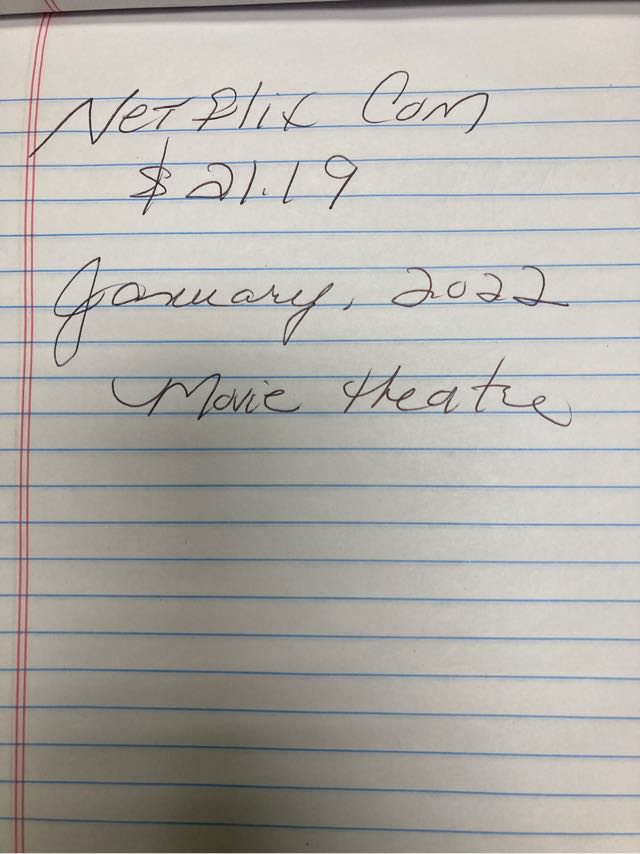 Netflix Com
$21.19
January, 2022
Movie theatre